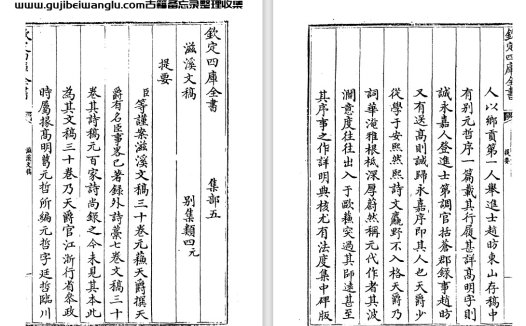 www.gujibeiwanglu.com古籍备忘录整理收集
欽定四庫全書
集部五
滋溪文稿
別集類四元
提要
臣等謹案滋溪文稿三十卷元蘇天爵撰天
爵有名臣事畧已著録外詩藁七卷文稿三十
卷其詩稿元百家詩尚録之今未見其本此
為其文稿三十卷乃天爵官江浙行省參政
時屬掾高明葛元哲所編元哲字廷哲臨川
滋溪文稿
欽定四庫全書
提要
人以鄉貢第一人舉進士趙汸東山存稿中
有别元哲序一篇載其行履甚詳高明字則
誠永嘉人登進士第調官括蒼郡録事趙汸
又有送高則誠歸永嘉序即其人也天爵少
從學于安熙然熙詩文麤野不入格天爵乃
詞華淹雅根柢深厚蔚然稱元代作者其波
瀾意度往往出入于歐蘇突過其師遠甚至
其序事之作詳明典核尤有法度集中碑版